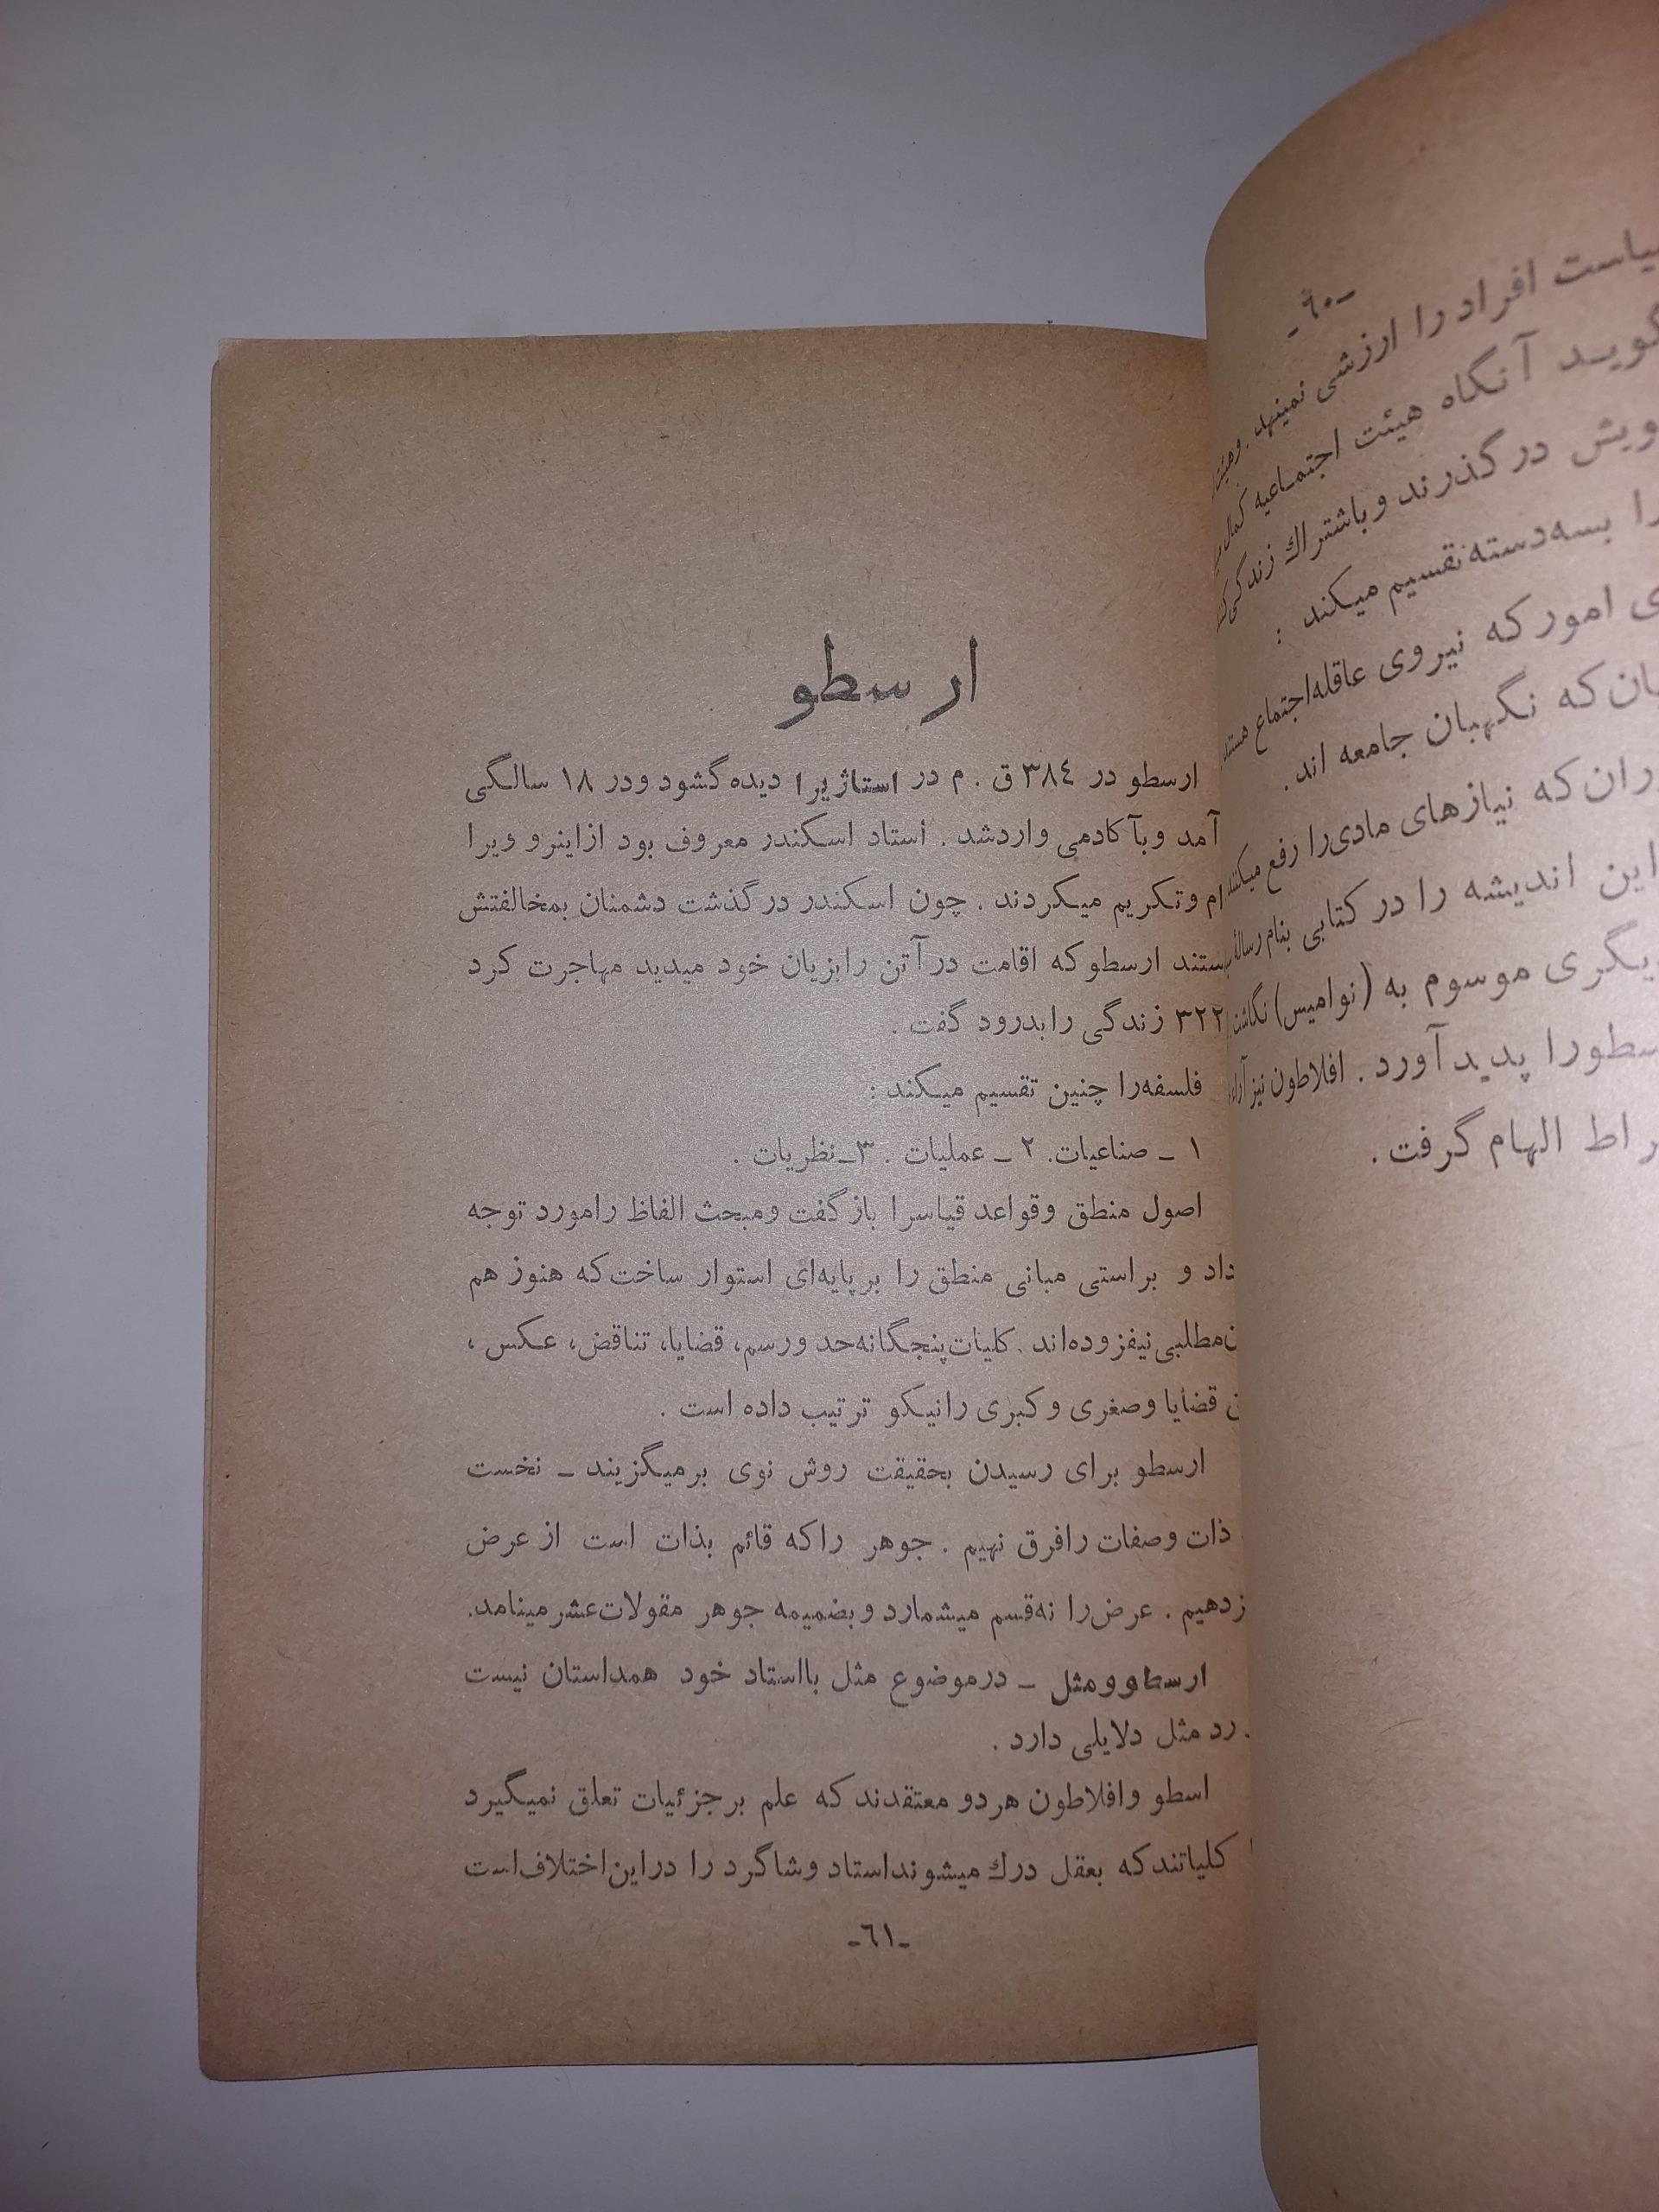 -٦٠-
افراد را ارزشی نمینهد . وهیئت
آنگاه هیئت اجتماعیه کمال
در گذرند و باشتراك زندگی کنند
بسه‌دسته تقسیم میکند :
امور که نیروی عاقله اجتماع هستند
که نگهبان جامعه اند .
که نیازهای مادی‌را رفع میکنند
این اندیشه را در کتابی بنام رساله
موسوم به (نوامیس) نگاشت
پدید آورد . افلاطون نیز آراء
الهام گرفت .
ارسطو
ارسطو در ٣٨٤ ق . م در استاژیرا دیده گشود ودر ١٨ سالگی
آمد وبآکادمی واردشد . استاد اسکندر معروف بود ازاینرو ویرا
وتکریم میکردند . چون اسکندر در گذشت دشمنان بمخالفتش
ارسطو که اقامت در آتن رابزیان خود میدید مهاجرت کرد
٣٢٢ زندگی رابدرود گفت .
فلسفه‌را چنین تقسیم میکند :
١ ـ صناعیات. ٢ ـ عملیات . ٣ـ نظریات .
اصول منطق وقواعد قیاسرا بازگفت ومبحث الفاظ رامورد توجه
داد و براستی مبانی منطق را بر پایه‌ای استوار ساخت که هنوز هم
مطلبی نیفزوده‌اند . کلیات پنجگانه حد ورسم، قضایا، تناقض، عکس ،
قضایا وصغری وکبری رانیکو ترتیب داده است .
ارسطو برای رسیدن بحقیقت روش نوی برمیگزیند ـ نخست
ذات وصفات رافرق نهیم . جوهر راکه قائم بذات است از عرض
دهیم . عرض‌را نه‌قسم میشمارد وبضمیمه جوهر مقولات‌عشر مینامد.
ارسطوومثل ـ درموضوع مثل بااستاد خود همداستان نیست
رد مثل دلایلی دارد .
اسطو وافلاطون هردو معتقدند که علم برجزئیات تعلق نمیگیرد
کلیاتند که بعقل درك میشوند استاد وشاگرد را دراین اختلاف است
-٦١-